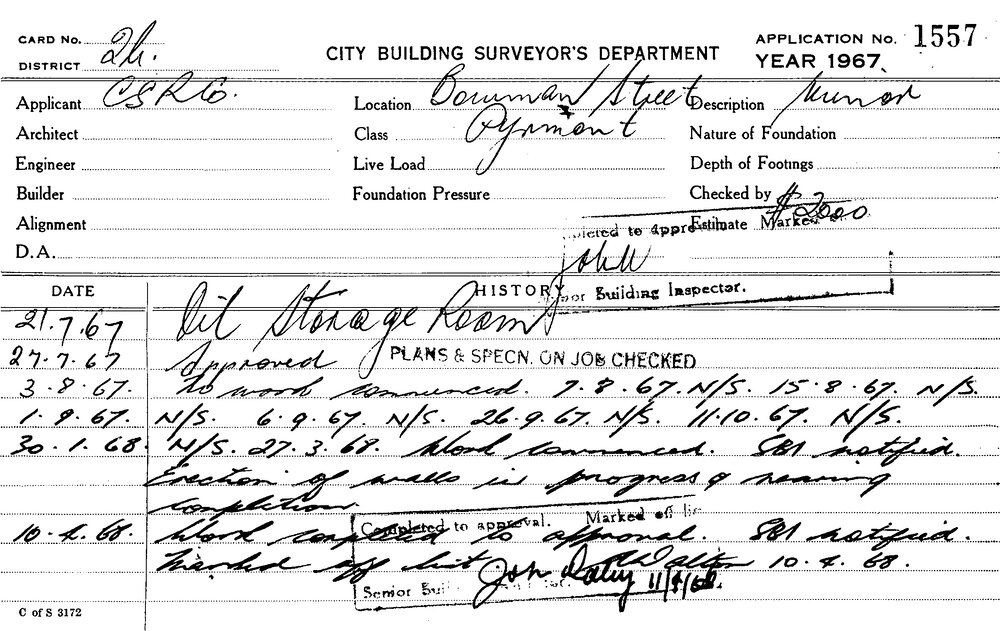 CARD No. 2h.
CITY BUILDING SURVEYOR'S DEPARTMENT
APPLICATION No. 1557
DISTRICT
YEAR 1967
Applicant C S R Co. Location Bowman Street Description Minor
Architect Class Pyrmont Nature of Foundation
Engineer Live Load Depth of Footings
Builder Foundation Pressure Checked by
Alignment Estimate $2000
pleted to approval Marked off
D.A.
Senior Building Inspector.
DATE HISTORY
21.7.67 Oil Storage Room
27.7.67 Approved PLANS & SPECN. ON JOB CHECKED
3.8.67. No work commenced. 7.8.67. N/S. 15.8.67. N/S.
1.9.67. N/S. 6.9.67. N/S. 26.9.67. N/S. 11.10.67. N/S.
30.1.68. N/S. 27.3.68. Work commenced. SBI notified.
Erection of walls in progress & nearing
completion.
10.4.68. Work completed to approval. SBI notified.
Completed to approval. Marked off lis
Marked off list 10.4.68.
Senior Bui 11/4/68.
C of S 3172